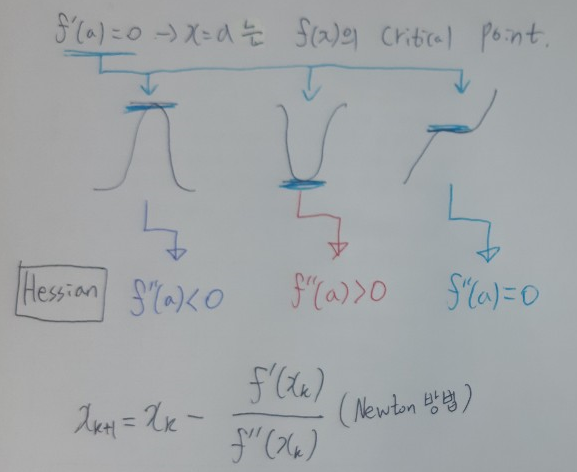 f'(a)=0 → x=a 는 f(x)의 Critical Point.
Hessian f''(a)<0 f''(a)>0 f''(a)=0
x_{k+1} = x_k - f'(x_k) / f''(x_k) (Newton 방법)